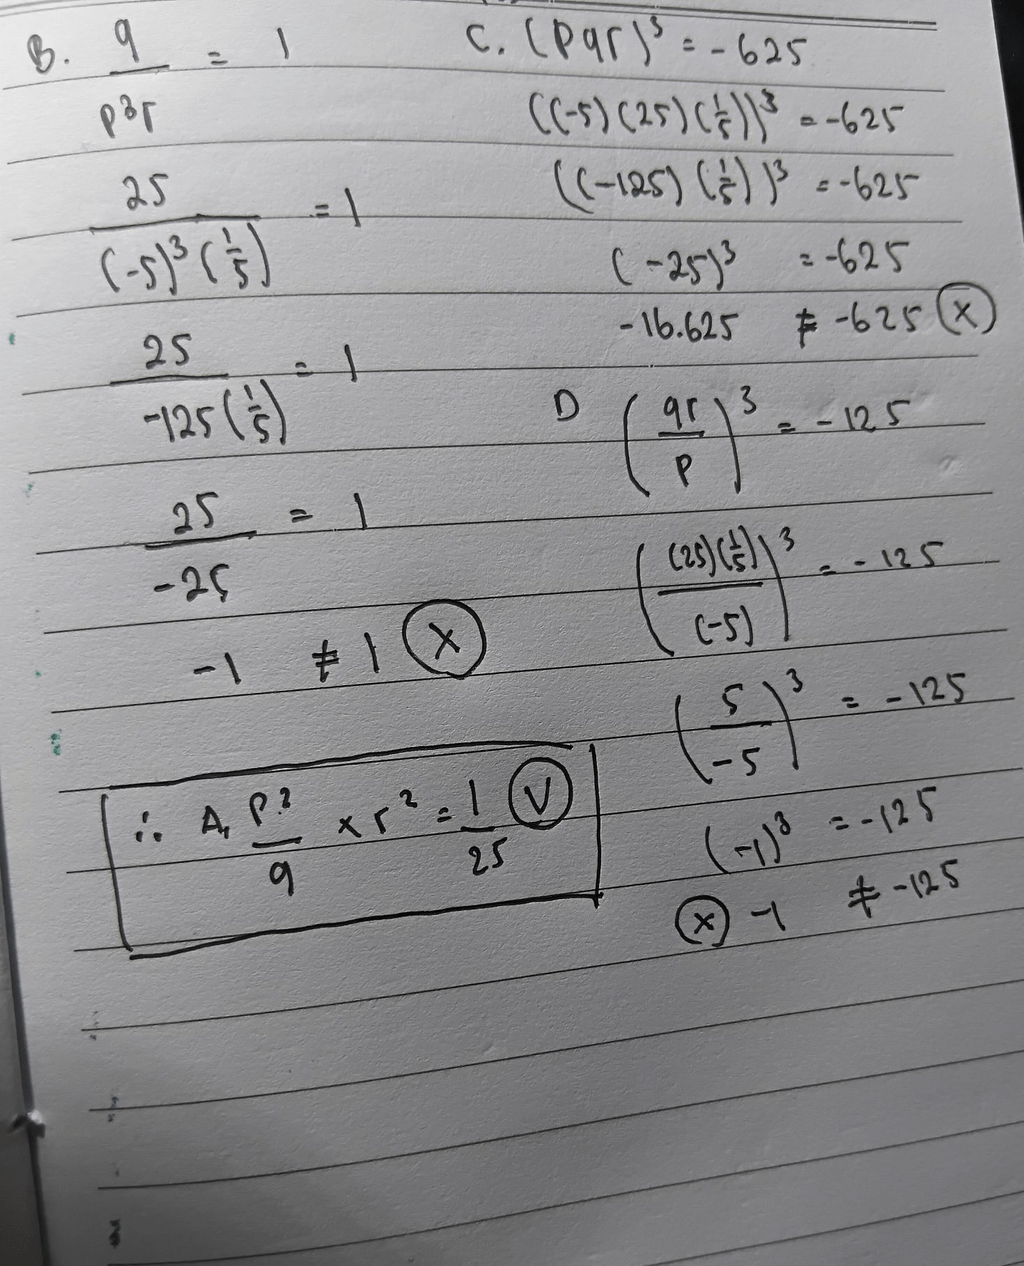 B. q/(p³r) = 1
25/((-5)³(1/5)) = 1
25/(-125(1/5)) = 1
25/-25 = 1
-1 ≠ 1 (X)
∴ A, p²/q × r² = 1/25 (V)
C. (pqr)³ = -625
((-5)(25)(1/5))³ = -625
((-125)(1/5))³ = -625
(-25)³ = -625
-16.625 ≠ -625 (X)
D (qr/p)³ = -125
((25)(1/5)/(-5))³ = -125
(5/-5)³ = -125
(-1)³ = -125
(X) -1 ≠ -125